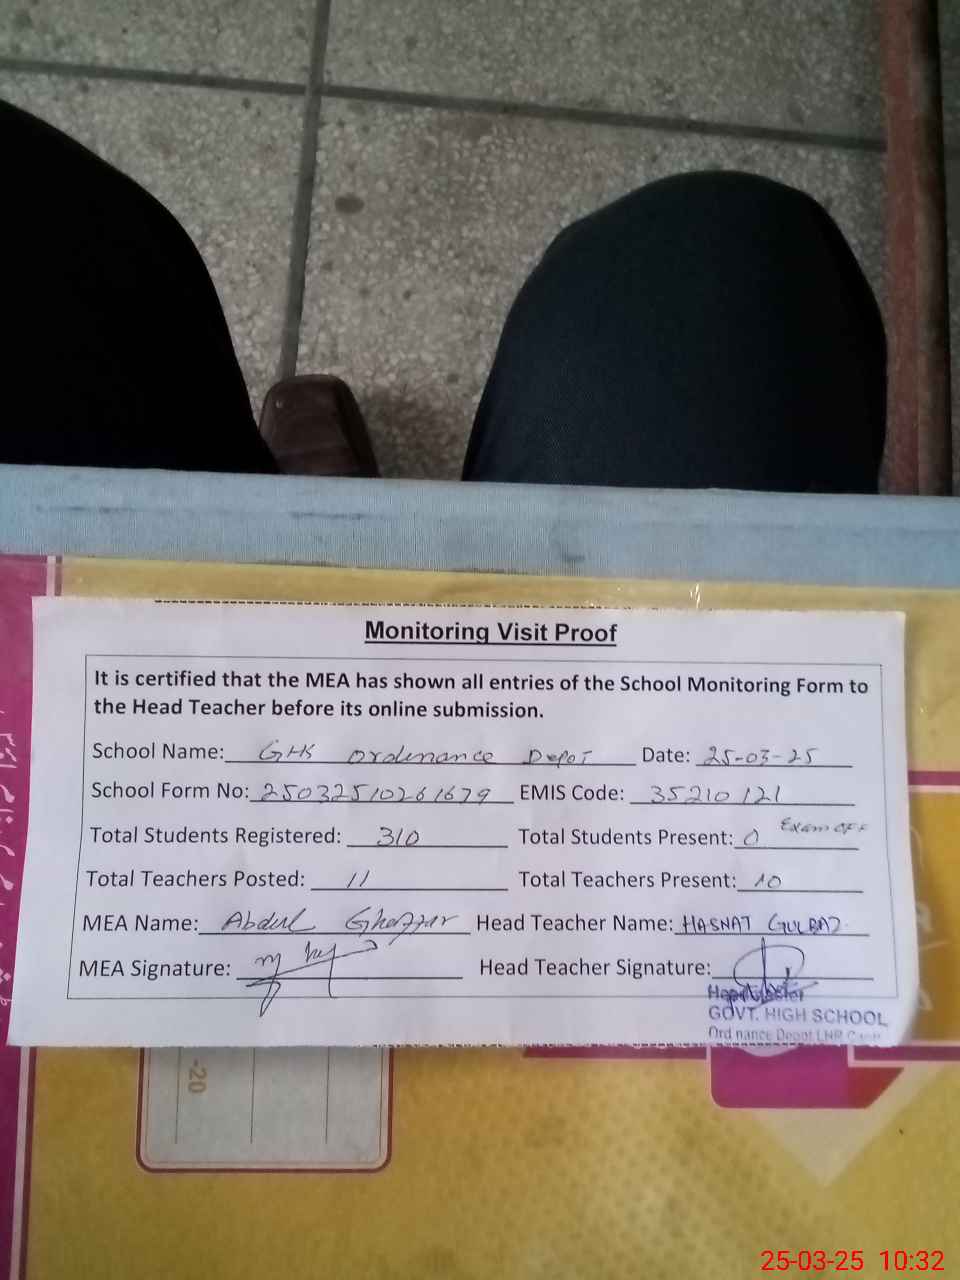 Monitoring Visit Proof
It is certified that the MEA has shown all entries of the School Monitoring Form to
the Head Teacher before its online submission.
School Name: GHS Ordenance Depot Date: 25-03-25
School Form No: 25032510261679 EMIS Code: 35210121
Total Students Registered: 310 Total Students Present: 0 Exam OFF
Total Teachers Posted: 11 Total Teachers Present: 10
MEA Name: Abdul Ghaffar Head Teacher Name: HASNAT GULBAZ
MEA Signature: Head Teacher Signature:
Headmaster
GOVT. HIGH SCHOOL
Ordnance Depot LHR Cantt
-20
25-03-25 10:32